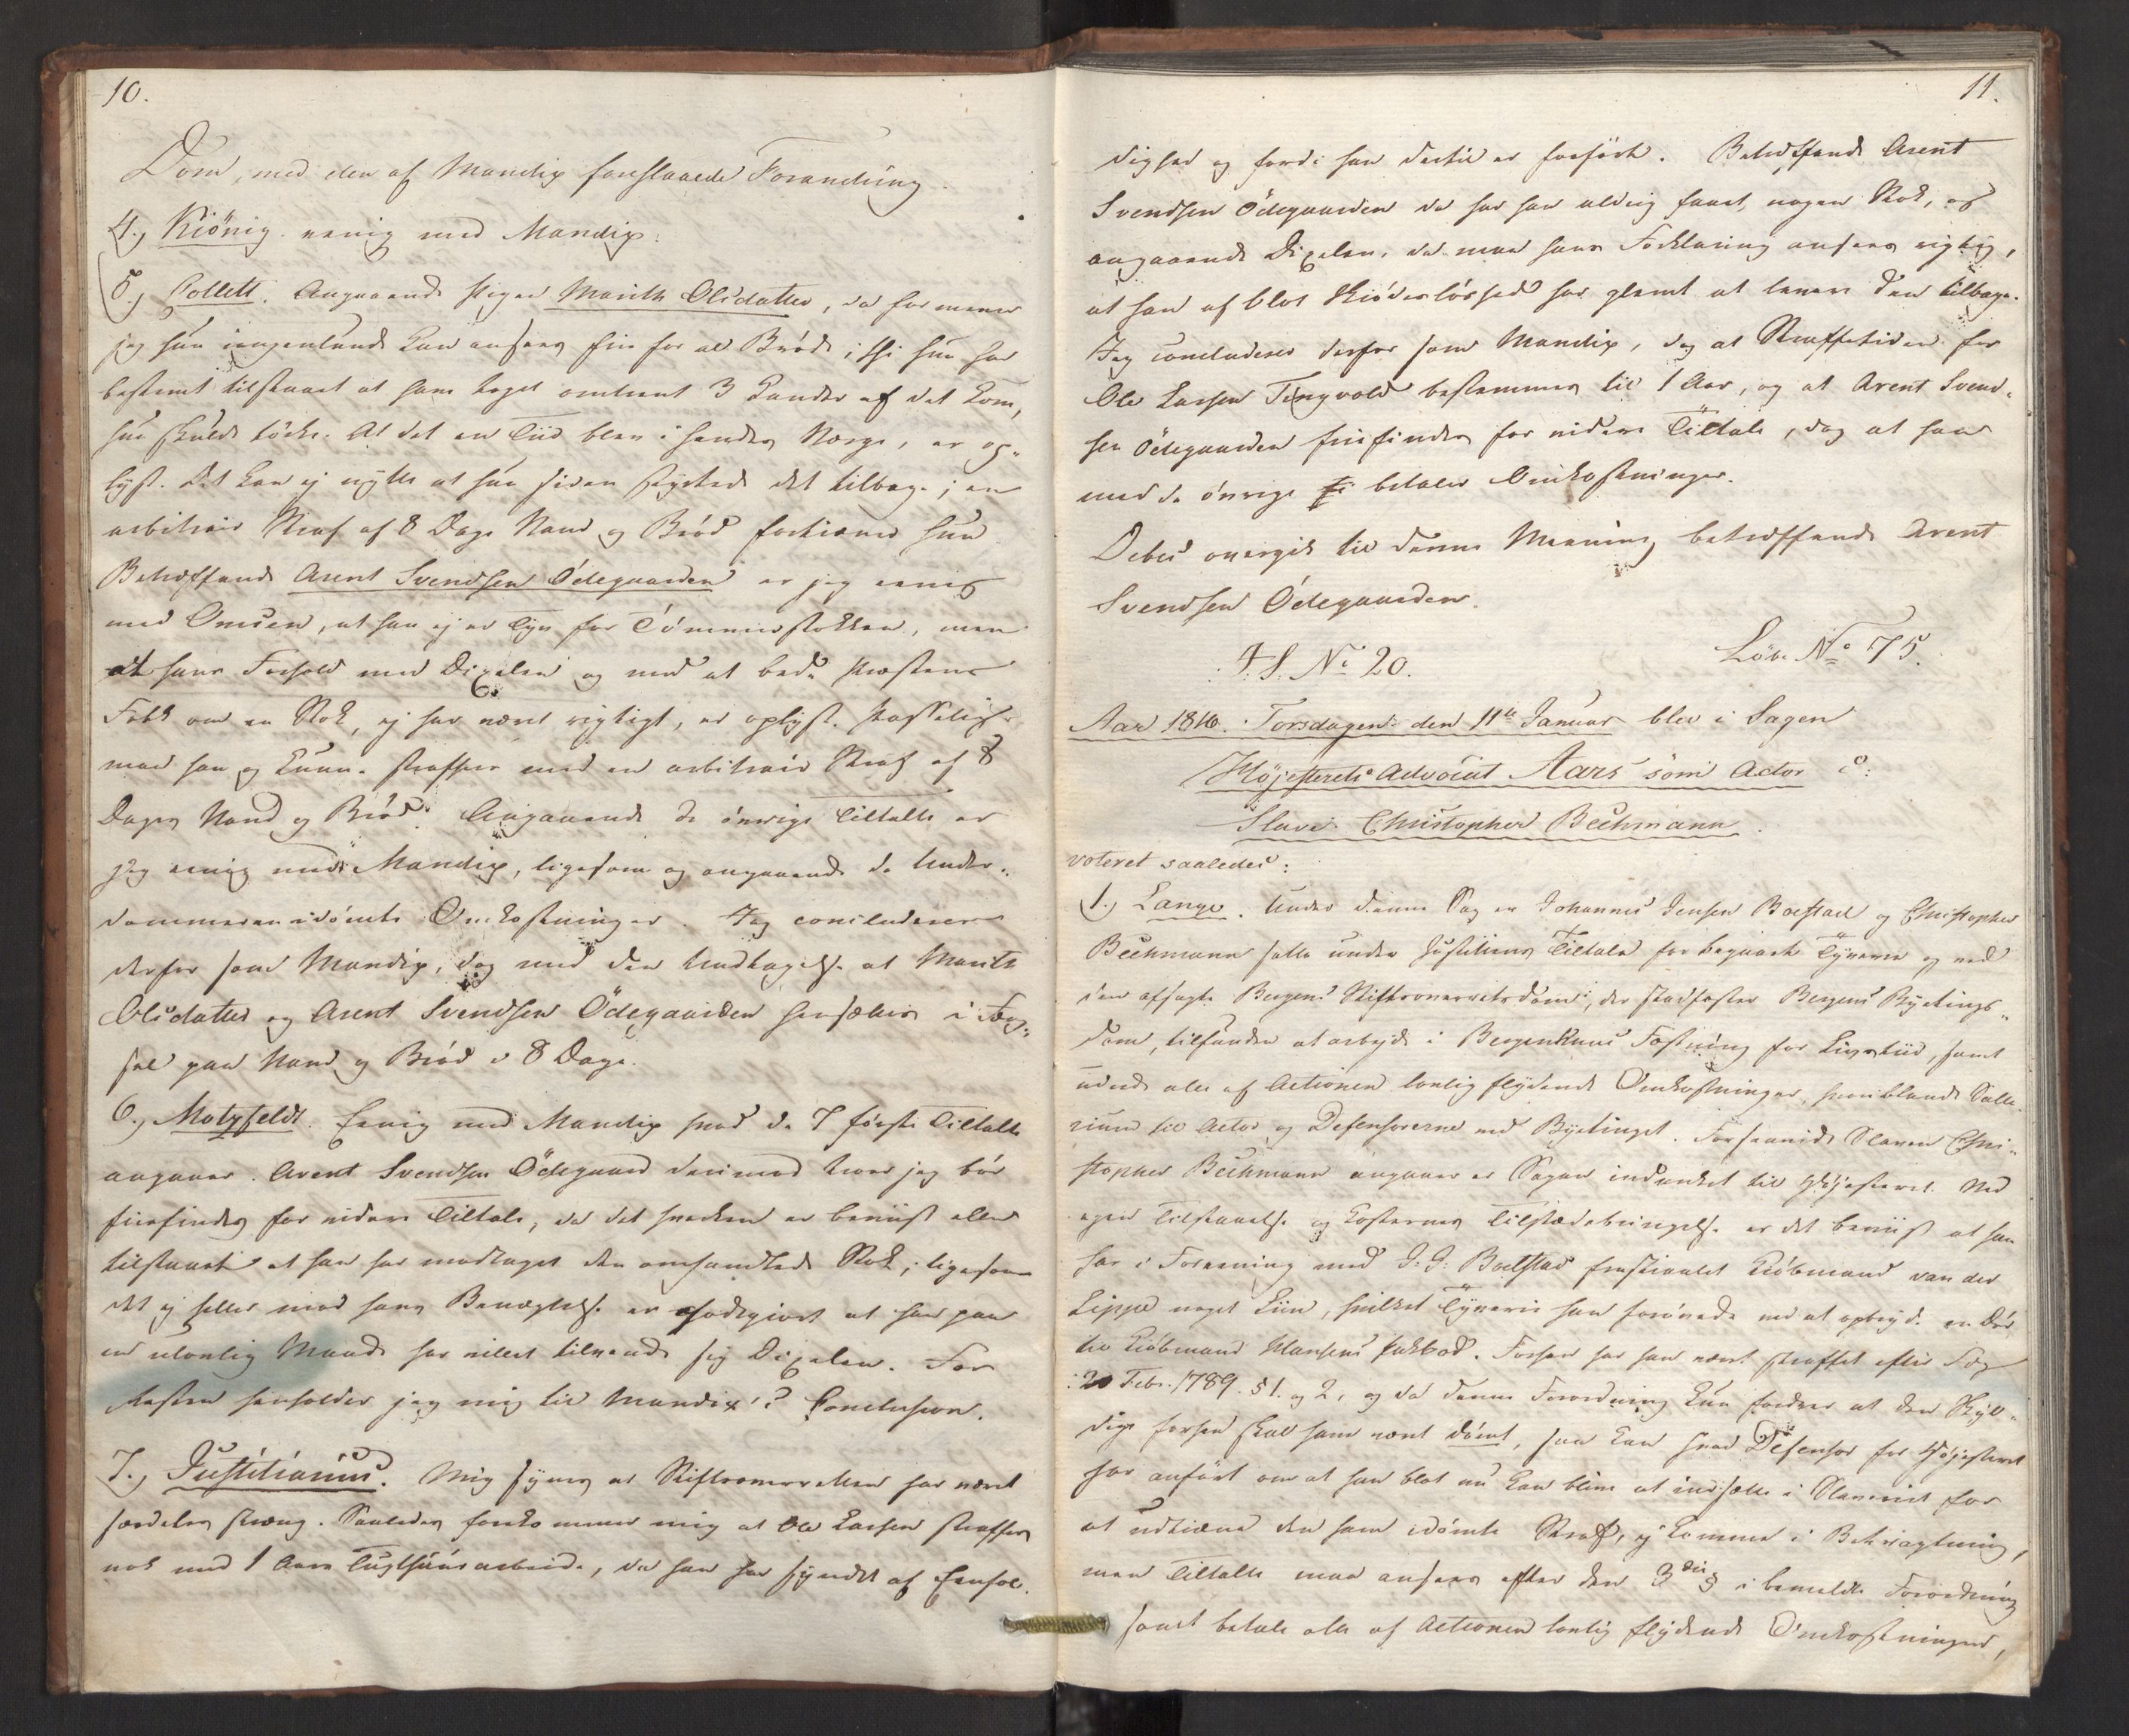 10.
Dom, med den af Mandix foreslaaede Forandring.
4.) Kiönig. eenig med Mandix.
5.) Collett. Angaaende Pigen Marith Olsdatter, da formener
jeg hun ingenlunde kan ansees frie for al Brøde; thi hun har
bestemt tilstaaet at have taget omtrent 3 Kander af det Korn,
hun skulde tørke. At det en Tiid blev i hendes Værge, er op-
lyst. Det kan ej nytte at hun siden skyttede det tilbage; en
arbitrair Straf af 8 Dage Vand og Brød fortiener hun.
Betræffende Arent Svendsen Ödegaarden er jeg eenig
med Omsen, at han ej er Tyv for Tömmerstokken, men
at hans Forhold med Dixelen og med at bede Præstens
Folk om en Stok, ej har været rigtigt, er oplyst. Passeligt
maa han og kunne straffes med en arbitrair Straf af 8
Dages Vand og Brød. Angaaende de øvrige Tiltalte er
jeg eenig med Mandix, ligesom og angaaende de Under-
dommeren idømte Omkostninger. Jeg concluderer
derfor som Mandix, dog med den Undtagelse at Marith
Olsdatter og Arent Svendsen Ödegaarden hensættes i Fæng-
sel paa Vand og Brød i 8 Dage.
6.) Motzfeldt. Eenig med Mandix hvad de 7 første Tiltalte
angaaer. Arent Svendsen Ödegaard derimod troer jeg bør
friefindes for videre Tiltale, da det hverken er beviist eller
tilstaaet at han har modtaget den omhandlede Stok; ligesom
det ej heller mod hans Benægtelse er godtgiort at han paa
en ulovlig Maade har villet tilvende sig Dixelen. For
Resten henholder jeg mig til Mandix's Conclusion.
7.) Justitiarius. Mig synes at Stiftsoverretten har været
særdeles streng. Saaledes forekommer mig at Ole Larsen straffes
nok med 1 Aars Tugthuusarbeide, da han har syndet af Eenfol-
11.
dighed og fordi han dertil er forført. Betræffende Arent
Svendsen Ödegaarden da har han aldrig faaet nogen Stok, og
angaaende Dixelen, da maa hans Forklaring ansees rigtig,
at han af blot Skiødesløshed har glemt at levere den tilbage.
Jeg concluderer derfor som Mandix, dog at Straffetiden for
Ole Larsen Tangvold bestemmes til 1 Aar, og at Arent Svend-
sen Ödegaarden friefindes for videre Tiltale, dog at han
med de øvrige betaler Omkostninger.
Debes overgik til denne Meening betræffende Arent
Svendsen Ödegaarden.
F. S. No 20. Löbe No 75.
Aar 1816. Torsdagen den 11te Januar blev i Sagen
Höjesterets Advocat Aars som Actor C:
Slave Christopher Bechmann
voteret saaledes:
1.) Lange. Under denne Sag er Johannes Jensen Bolstad og Christopher
Bechmann satte under Justitiens Tiltale for begaaet Tyverie og ved
den afsagte Bergens Stiftsoverretsdom, der stadfæster Bergens Byetings-
dom, tilfunden at arbejde i Bergenhuus Fæstning for Livstiid, samt
udrede alle af Actionen lovlig flydende Omkostninger, hvoriblandt Salla-
rium til Actor og Defensorerne ved Byetinget. Forsaavidt Slaven Chri-
stopher Bechmann angaaer er Sagen indanket til Höjesteret. Ved
egen Tilstaaelse og Kosternes Tilstædebringelse er det beviist at han
har i Forening med J. J. Bolstad frastiaalet Kiøbmand van der
Lippe noget Liin, hvilket Tyverie han forøvede ved at opbryde en Dør
til Kiøbmand Hansens Pakbod. Forhen har han været straffet efter Fog
20 Febr. 1789. § 1. og 2, og da denne Forordning kun fordrer at den Skyl-
dige forhen skal have været dömt, saa kan hvad Defensor for Höjesteret
har anført om at han blot nu kan blive at indsætte i Slaveriet for
at udtiene den ham idømte Straf, ej komme i Betragtning,
men Tiltalte maa ansees efter den 3die § i bemeldte Forordning
samt betale alle af Actionen lovlig flydende Omkostninger,